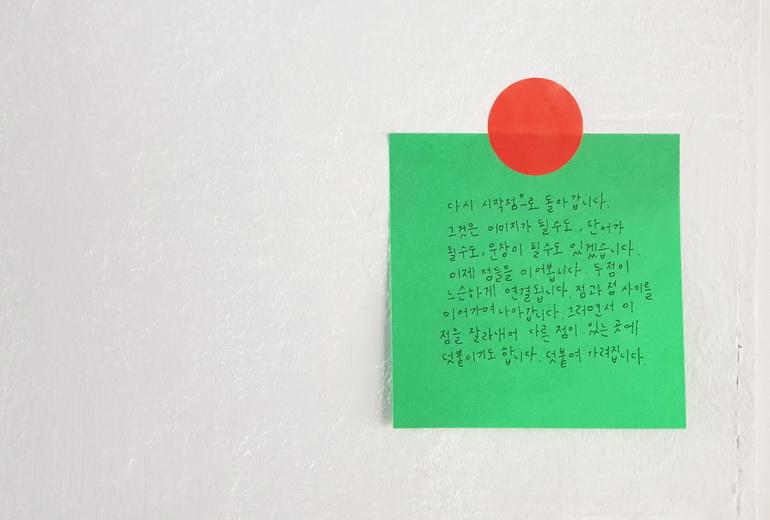 다시 시작점으로 돌아갑니다.
그것은 이미지가 될수도, 단어가
될수도, 문장이 될수도 있겠습니다.
이제 점들을 이어봅니다. 두점이
느슨하게 연결됩니다. 점과 점 사이를
이어가며 나아갑니다. 그러면서 이
점을 잘라내어 다른 점이 있는 곳에
덧붙이기도 합니다. 덧붙여 가려집니다.